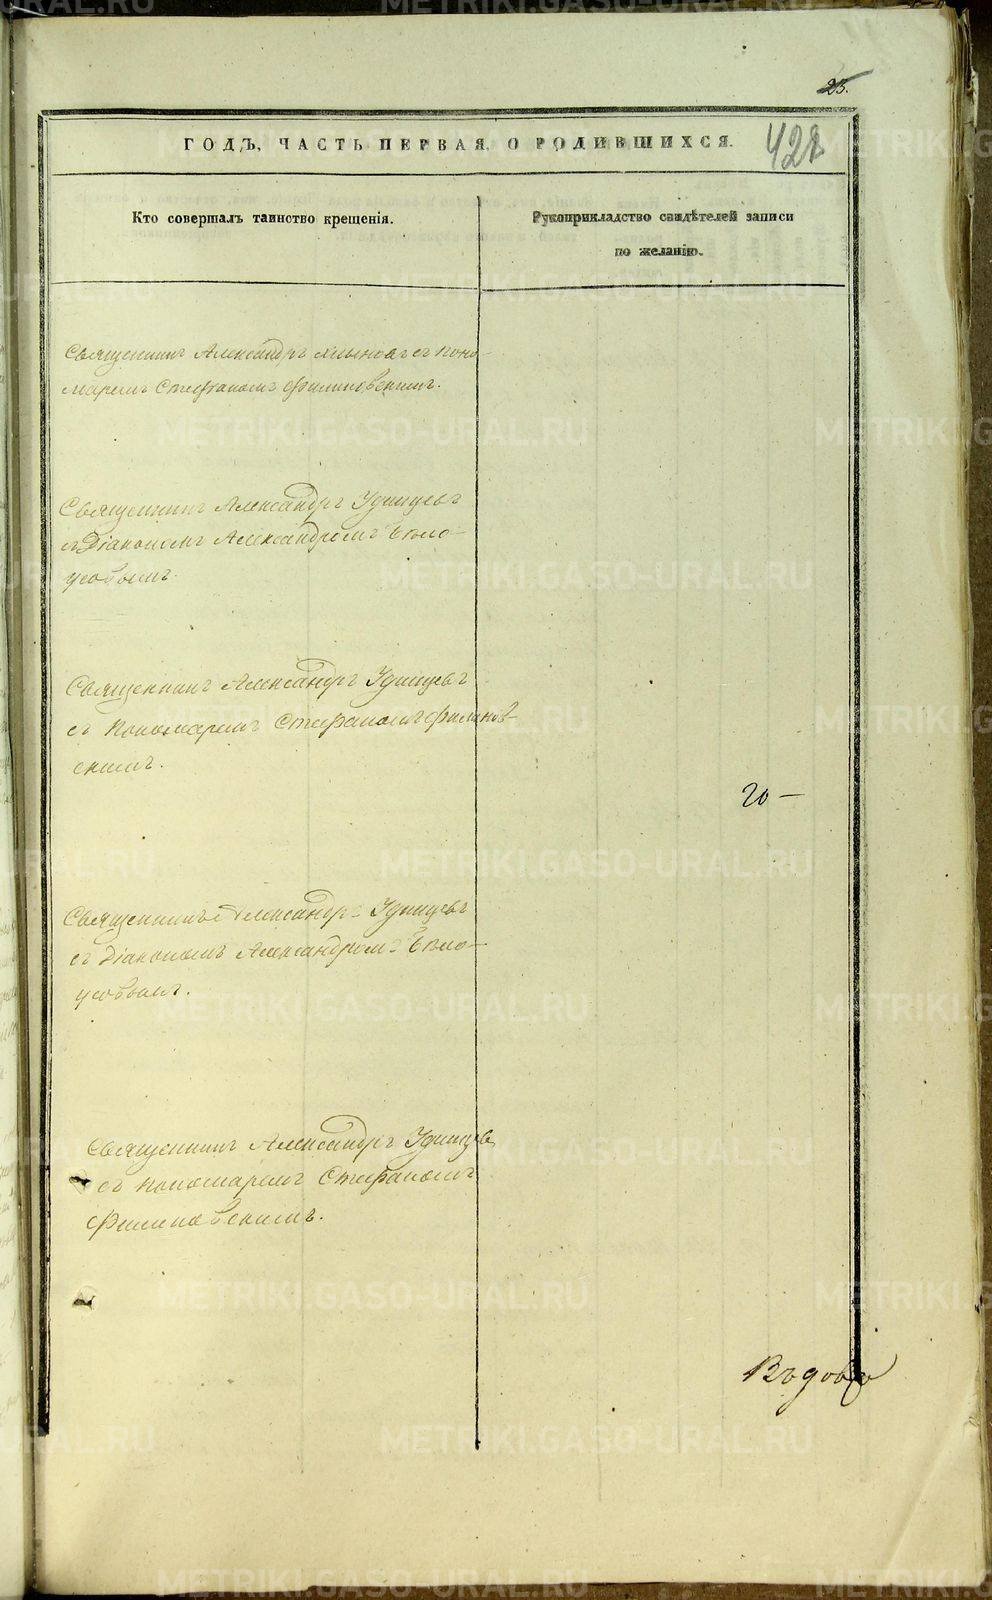 25.
ГОДЪ, ЧАСТЬ ПЕРВАЯ, О РОДИВШИХСЯ.
428
Кто совершалъ таинство крещенія.
Рукоприкладство свидѣтелей записи
по желанію.
Священникъ Александръ съ Поно-
маремъ Стефаномъ Филиновскимъ.
Священникъ Александръ Удинцевъ
съ Діакономъ Александромъ Бѣло-
усовымъ.
Священникъ Александръ Удинцевъ
съ Пономаремъ Стефаномъ Филинов-
скимъ.
20 —
Священникъ Александръ Удинцевъ
съ Діакономъ Александромъ Бѣло-
усовымъ.
Священникъ Александръ Удинцевъ
съ Пономаремъ Стефаномъ
Филиновскимъ.
METRIKI.GASO-URAL.RU